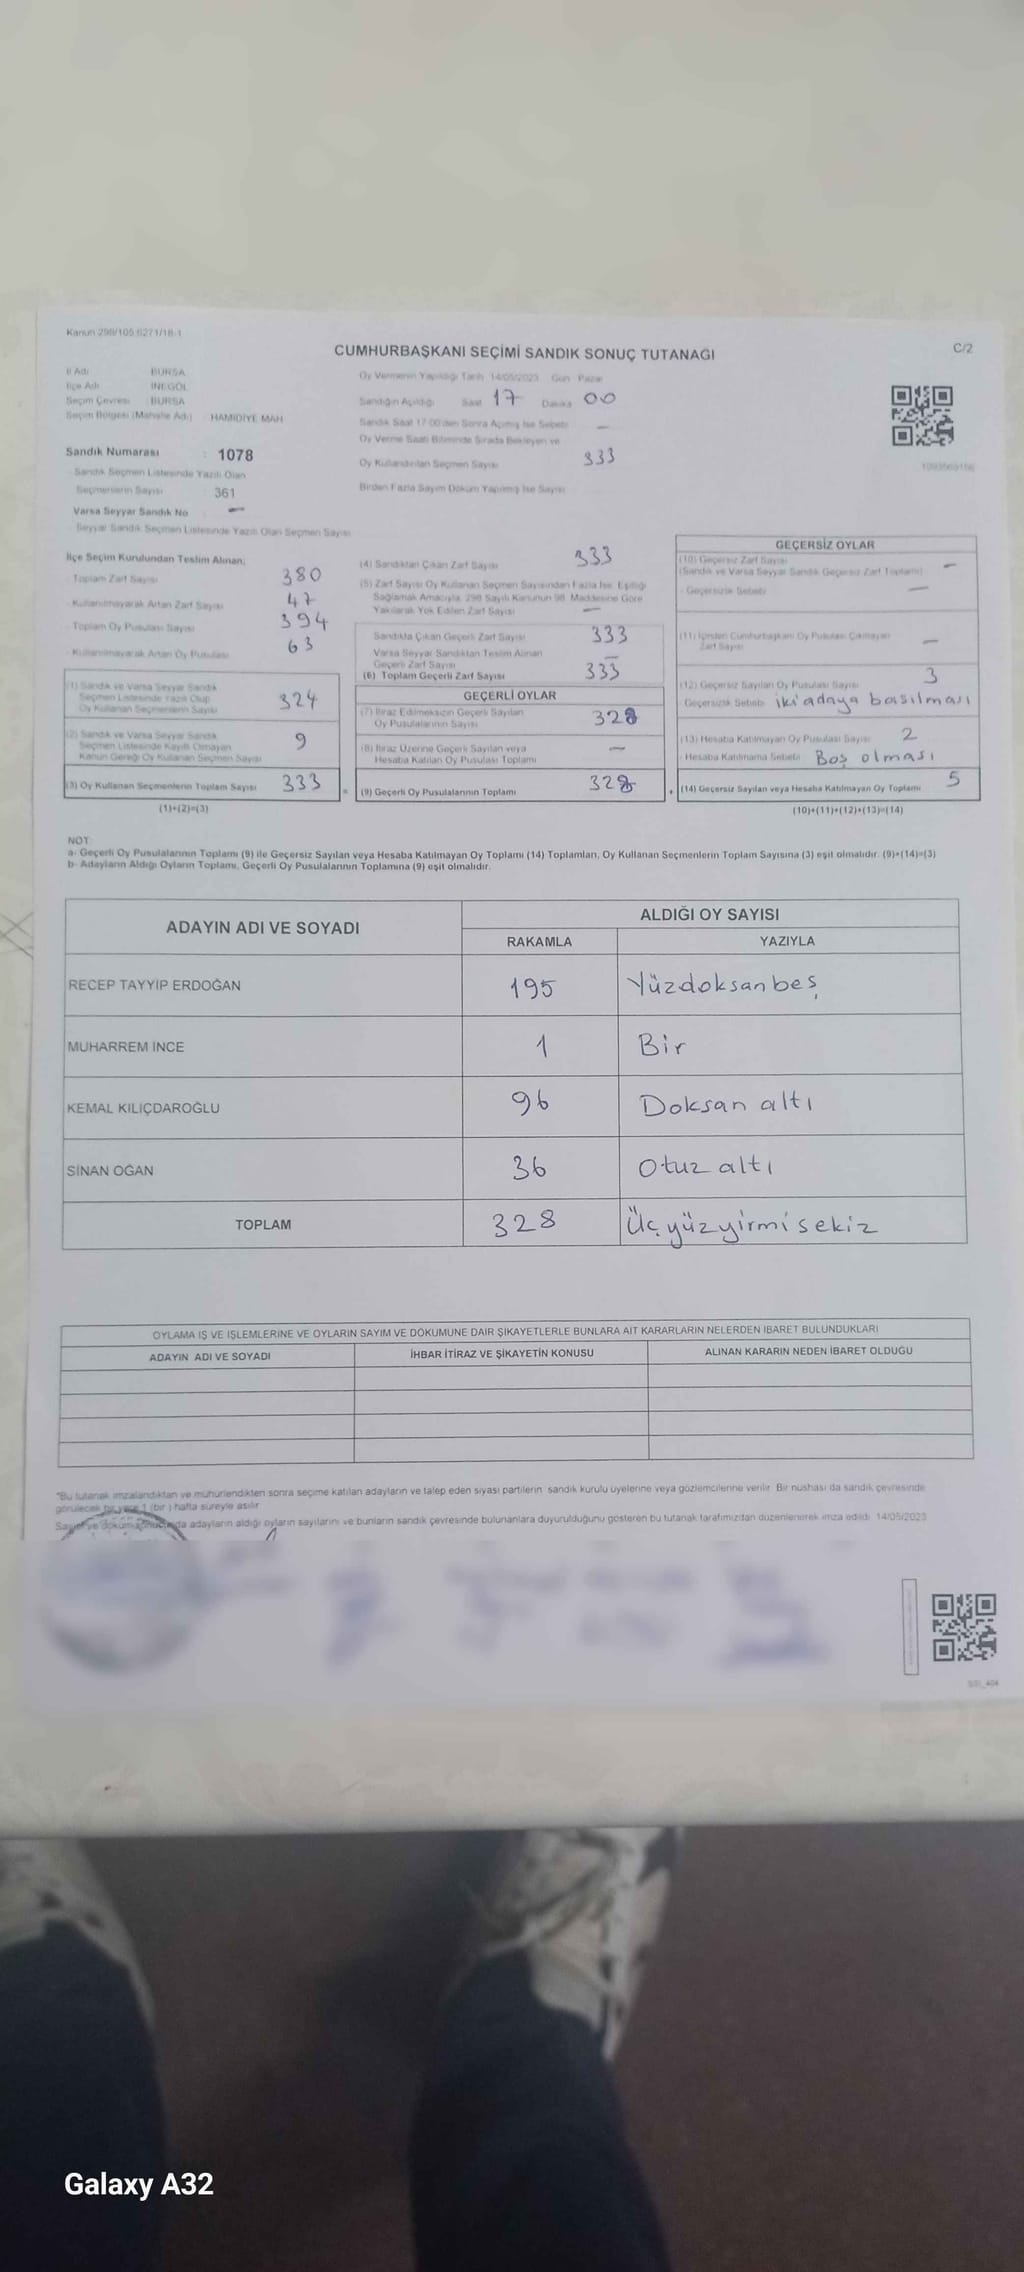 Kanun 298/105 6271/18-1
C/2
CUMHURBAŞKANI SEÇİMİ SANDIK SONUÇ TUTANAĞI
İl Adı BURSA
İlçe Adı İNEGÖL
Seçim Çevresi : BURSA
Seçim Bölgesi (Mahalle Adı) : HAMİDİYE MAH
Sandık Numarası : 1078
Sandık Seçmen Listesinde Yazılı Olan
Seçmenlerin Sayısı : 361
Varsa Seyyar Sandık No –
Seyyar Sandık Seçmen Listesinde Yazılı Olan Seçmen Sayısı
Oy Vermenin Yapıldığı Tarih 14/05/2023 Gün Pazar
Sandığın Açıldığı Saat 17 Dakika 00
Sandık Saat 17:00'den Sonra Açılmış İse Sebebi –
Oy Verme Saati Bitiminde Sırada Bekleyen ve
Oy Kullandırılan Seçmen Sayısı 333
Birden Fazla Sayım Döküm Yapılmış İse Sayısı
İlçe Seçim Kurulundan Teslim Alınan;
Toplam Zarf Sayısı 380
Kullanılmayarak Artan Zarf Sayısı 47
Toplam Oy Pusulası Sayısı 394
Kullanılmayarak Artan Oy Pusulası 63
(1) Sandık ve Varsa Seyyar Sandık
Seçmen Listesinde Yazılı Olup
Oy Kullanan Seçmenlerin Sayısı 324
(2) Sandık ve Varsa Seyyar Sandık
Seçmen Listesinde Kayıtlı Olmayan
Kanun Gereği Oy Kullanan Seçmen Sayısı 9
(3) Oy Kullanan Seçmenlerin Toplam Sayısı 333
(1)+(2)=(3)
(4) Sandıktan Çıkan Zarf Sayısı 333
(5) Zarf Sayısı Oy Kullanan Seçmen Sayısından Fazla İse, Eşitliği
Sağlamak Amacıyla, 298 Sayılı Kanunun 98. Maddesine Göre
Yakılarak Yok Edilen Zarf Sayısı –
Sandıkta Çıkan Geçerli Zarf Sayısı 333
Varsa Seyyar Sandıktan Teslim Alınan
Geçerli Zarf Sayısı –
(6) Toplam Geçerli Zarf Sayısı 333
GEÇERLİ OYLAR
(7) İtiraz Edilmeksizin Geçerli Sayılan
Oy Pusulalarının Sayısı 328
(8) İtiraz Üzerine Geçerli Sayılan veya
Hesaba Katılan Oy Pusulası Toplamı –
= (9) Geçerli Oy Pusulalarının Toplamı 328
GEÇERSİZ OYLAR
(10) Geçersiz Zarf Sayısı –
(Sandık ve Varsa Seyyar Sandık Geçersiz Zarf Toplamı)
Geçersizlik Sebebi –
(11) İçinden Cumhurbaşkanı Oy Pusulası Çıkmayan
Zarf Sayısı –
(12) Geçersiz Sayılan Oy Pusulası Sayısı 3
Geçersizlik Sebebi iki adaya basılması
(13) Hesaba Katılmayan Oy Pusulası Sayısı 2
Hesaba Katılmama Sebebi Boş olması
+ (14) Geçersiz Sayılan veya Hesaba Katılmayan Oy Toplamı 5
(10)+(11)+(12)+(13)=(14)
NOT:
a- Geçerli Oy Pusulalarının Toplamı (9) ile Geçersiz Sayılan veya Hesaba Katılmayan Oy Toplamı (14) Toplamları, Oy Kullanan Seçmenlerin Toplam Sayısına (3) eşit olmalıdır. (9)+(14)=(3)
b- Adayların Aldığı Oyların Toplamı, Geçerli Oy Pusulalarının Toplamına (9) eşit olmalıdır.
ADAYIN ADI VE SOYADI
ALDIĞI OY SAYISI
RAKAMLA YAZIYLA
RECEP TAYYİP ERDOĞAN 195 Yüzdoksanbeş
MUHARREM İNCE 1 Bir
KEMAL KILIÇDAROĞLU 96 Doksan altı
SİNAN OĞAN 36 Otuz altı
TOPLAM 328 Üçyüzyirmisekiz
OYLAMA İŞ VE İŞLEMLERİNE VE OYLARIN SAYIM VE DÖKÜMÜNE DAİR ŞİKAYETLERLE BUNLARA AİT KARARLARIN NELERDEN İBARET BULUNDUKLARI
ADAYIN ADI VE SOYADI İHBAR İTİRAZ VE ŞİKAYETİN KONUSU ALINAN KARARIN NEDEN İBARET OLDUĞU
*Bu tutanak imzalandıktan ve mühürlendikten sonra seçime katılan adayların ve talep eden siyasi partilerin sandık kurulu üyelerine veya gözlemcilerine verilir. Bir nüshası da sandık çevresinde
görülecek bir yere 1 (bir) hafta süreyle asılır.
adayların aldığı oyların sayılarını ve bunların sandık çevresinde bulunanlara duyurulduğunu gösteren bu tutanak tarafımızdan düzenlenerek imza edildi. 14/05/2023
Galaxy A32